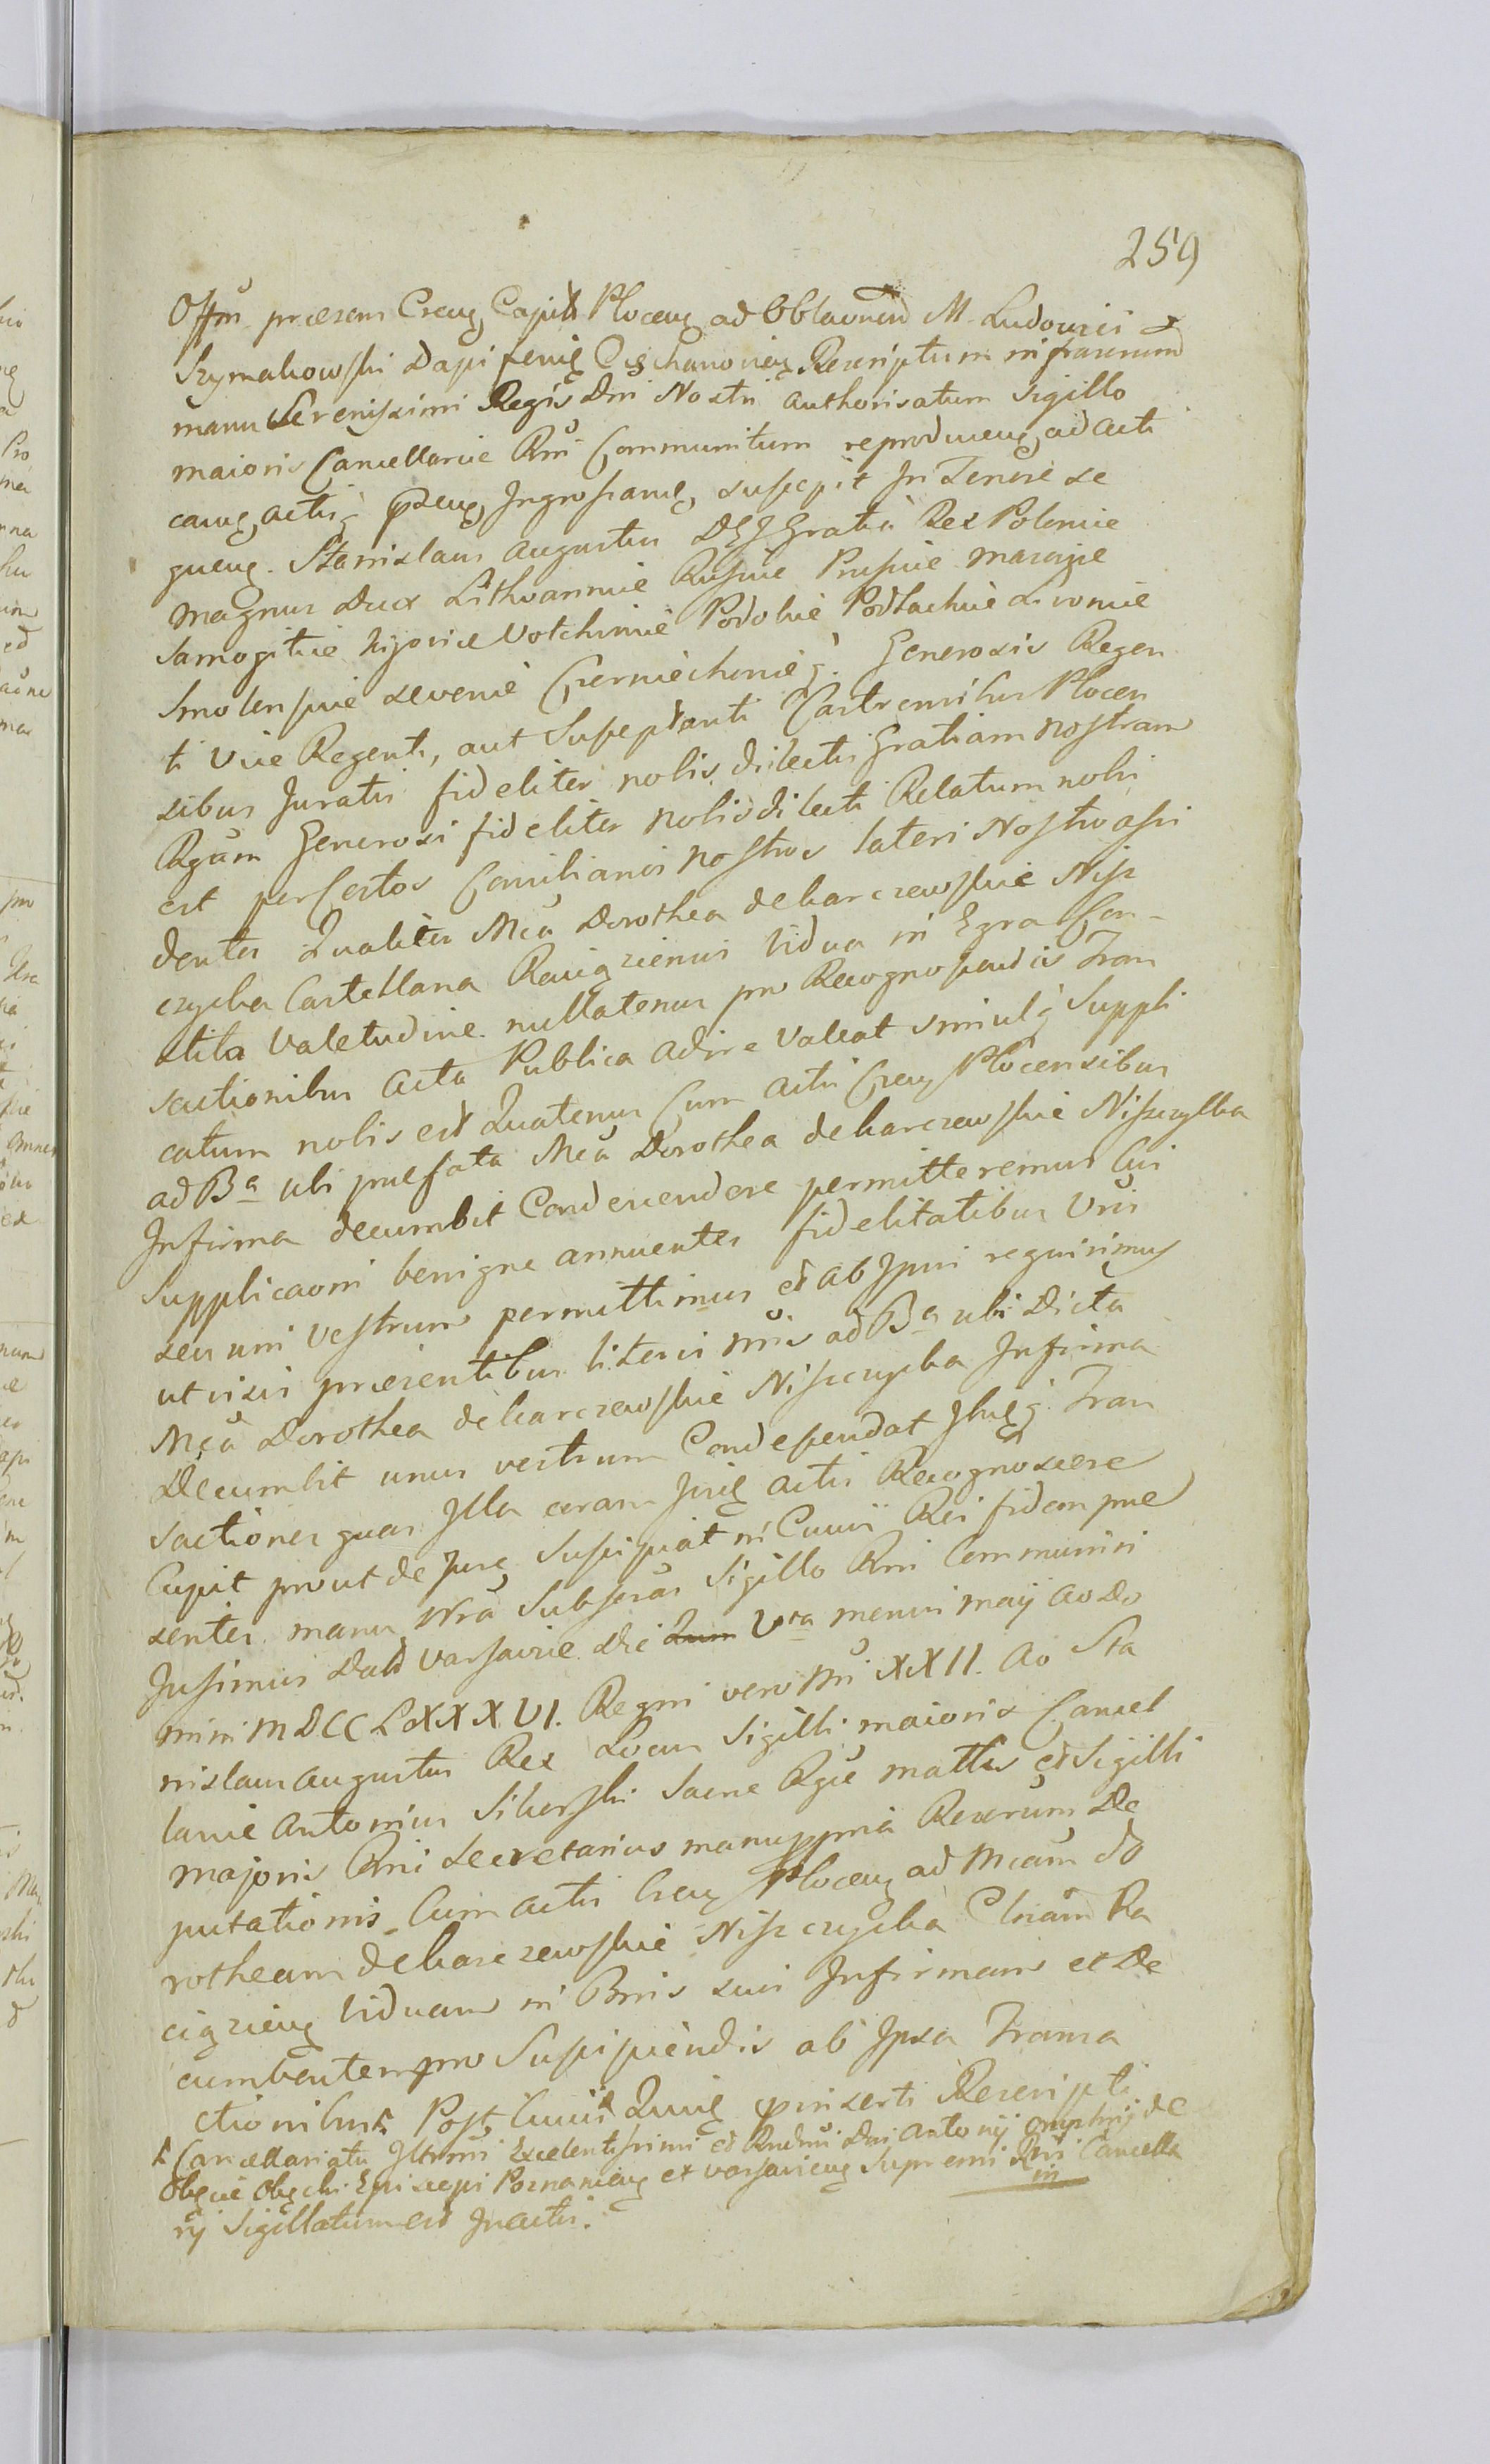 259
Offm præsens Creng Capitt Ploceng ad Oblaonem M. Ludovici
Szymakowski Dapiferilg Ciechanovieng Rescriptum infrascrum
manu Serenissimi Regis Dni Nostri authorisatum sigillo
maioris Cancellariæ Rni Communitum reproduceng, ad acti
cang, actis pseng, Ingrossand, suscepit In Tenore se
queng. Stanislaus Augustus DEI Gratia Rex Poloniæ
magnus Dux Lithvanniæ Russiæ Prussiæ Masoviæ
Samogitiæ Kijoviæ Volchiniæ Podoliæ Podlachiæ Livoniæ
Smolensciæ Seveniæ Czerniechoniæq. Generosis Regen
ti Vice Regenti, aut Susceptanti Castrensibus Plocen
sibus Juratis fideliter nobis dilectis Gratiam nostram
Rgam Generosi fideliter nobis dilecti Relatum nobis
est per Certos Consiliarios nostros lateri Nostro assi
dentes Qualiter Mca Dorothea de karczewskie Nisz
czycka Castellana Raciązienis Vidua in Egra Con-
stita Valetudine nullatenus pro Recognoscendis Tran
sactionibus acta Publica adire Valeat simulq Suppli
catum nobis est Quatenus Cum actis Creng Plocensibus
ad Ba ubi præfata Mca Dorothea de karczewskie Niszczycka
Infirma decumbit Condescendere permitteremus Cui
Supplicaoni benigne annuentes fidelitatibus Vris
seu uni Vestrum permittimus et ab Ipsis requirimus
ut visis præsentibus literis nris ad Ba ubi Dicta
Mca Dorothea de karczewskie Niszczycka Infirma
Decumbit unus vestrum Condescendat Ibiq Tran
sactiones quas Illa coram Ipsis actis Recognoscere
Cupit prout de Jure Suscipiat in Cuius Rei fidem præ
sentes manu Nra Subscras Sigillo Rni Communiri
Jussimus Datt Varsaviæ Die Vta mensis maij Ao Do
mini MDCCLXXXVI. Regni vero Nri XXII. Ao Sta
nislaus Augustus Rex Locus Sigilli maioris Cancel
lariæ Antonius Sikorski Sacræ Rgæ mattis et Sigilli
majoris Rni Secretarius manuppria Rescrum De
putationis Cum actis Creng Ploceng ad Mcam Do
rotheam de karczewskie Niszczycka Clnam Ra
ciązieng Viduam in Bnis suis Infirmam et De
cumbentem pro Suscipiendis ab Ipsa Transa
ctionibus Post Cuius Quid prinserti Rescripti
Cancellariatu Illrmi Excelentissimi et Rndmi Dni Antonij Onuphrij de
Okęcie Okęcki Episcopi Poznanieng et Varsavieng Supremi Rni Cancella
in
rij Sigillatum est In actis.